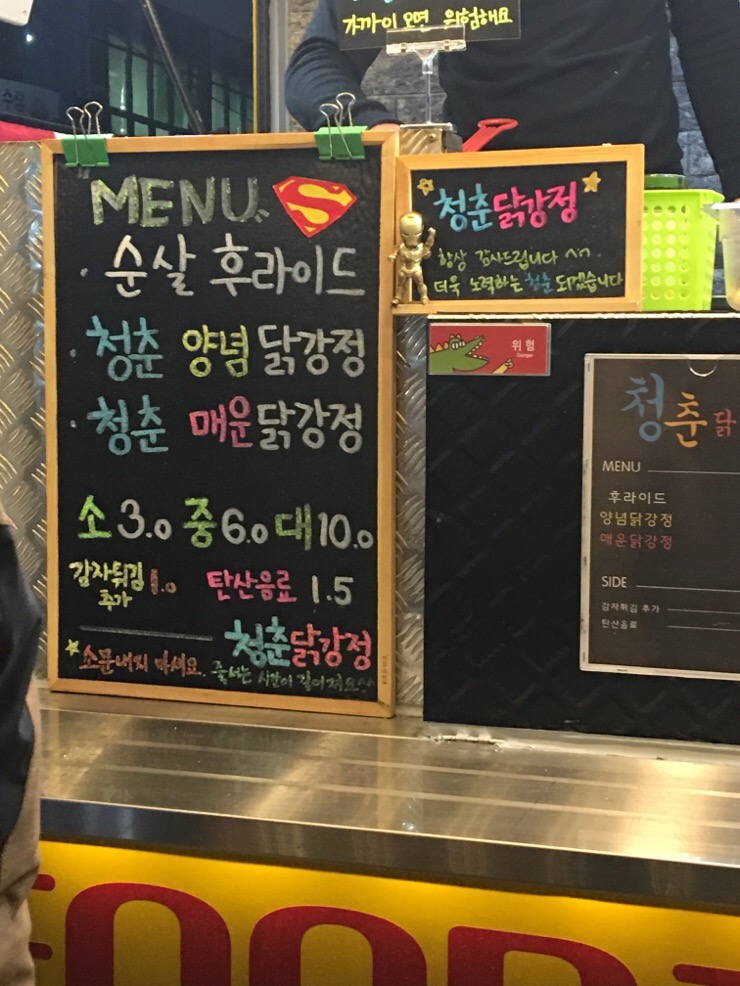 가까이 오면 위험해요
MENU S
순살 후라이드
청춘 양념 닭강정
청춘 매운 닭강정
소 3.0 중 6.0 대 10.0
감자튀김 추가 1.0 탄산음료 1.5
청춘닭강정
소문내지 마세요. 줄서는 시간이 길어져요^^
청춘닭강정
항상 감사드립니다 ^^
더욱 노력하는 청춘 되겠습니다
위험
Danger
청춘닭
MENU
후라이드
양념닭강정
매운닭강정
SIDE
감자튀김 추가
탄산음료